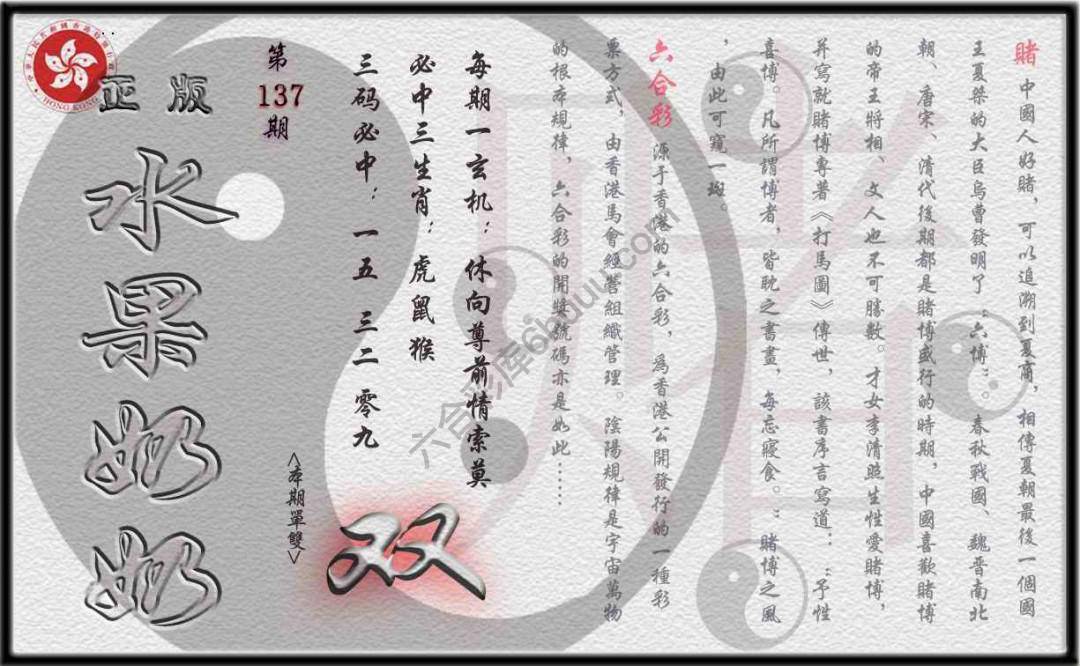 賭 中國人好賭，可以追溯到夏商，相傳夏朝最後一個國
王夏桀的大臣烏曹發明了“六博”。春秋戰國、魏晉南北
朝、唐宋、清代後期都是賭博盛行的時期，中國喜歡賭博
的帝王將相、文人也不可勝數。才女李清照生性愛賭博，
并寫就賭博專著《打馬圖》傳世，該書序言寫道：“予性
喜博。凡所謂博者，皆耽之晝書，每忘寢食。”賭博之風
，由此可窺一斑。
六合彩 源于香港的六合彩，為香港公開發行的一種彩
票方式，由香港馬會經營組織管理。陰陽規律是宇宙萬物
的根本規律，六合彩的開獎號碼亦是如此……
每期一玄机：休向尊前情索莫
必中三生肖：虎鼠猴
三码必中：一五 三二 零九
双
<本期單雙>
第
137
期
正版
水果奶奶
HONG KONG
六合彩库6huuu.com